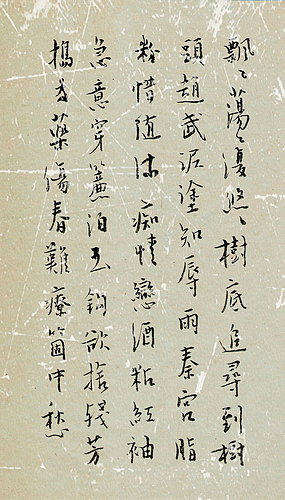 飄〻蕩〻復悠〻樹底追尋到樹
頭趙武泥塗知辱雨秦宮脂
粉惜随流痴情戀酒粘紅袖
急意穿簾泊玉鈎欲拾殘芳
搗为藥傷春難療箇中愁